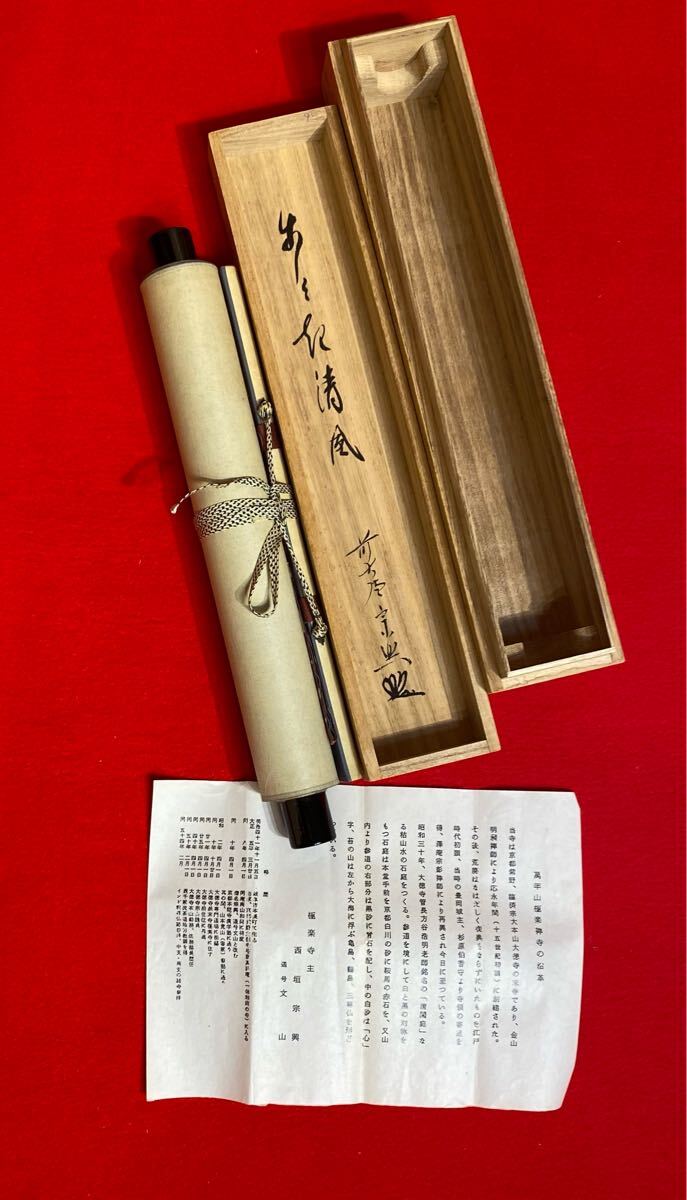 歩々起清風
前大徳 宗興
萬年山極楽禅寺の沿革
当寺は京都紫野、臨済宗大本山大徳寺の末寺であり、金山
明昶禅師により応永年間(十五世紀初頭)に創建された。
その後、荒廃はなはだしく復興もならずにいたものを江戸
時代初頭、当時の豊岡城主、杉原伯耆守より寺領の寄進を
得、澤庵宗彭禅師により再興され今日に至つている。
昭和三十年、大徳寺管長方谷岳明老師銘名の「清閑庭」な
る枯山水の石庭をつくる。参道を境にして白と黒の対称を
もつ石庭は本堂手前を京都白川の砂に鞍馬の赤石を、又山
内より参道の右部分は黒砂に青石を配し、中の白砂は「心」
字、苔の山は左から大海に浮ぶ亀島、鶴島、三尊仏を形ど
つている。
極楽寺主
西垣宗興
道号文山
略歴
明治四十一年十一月五日
大正
同 八年 四月一日
同 十年 四月一日
昭和 二年 四月一日